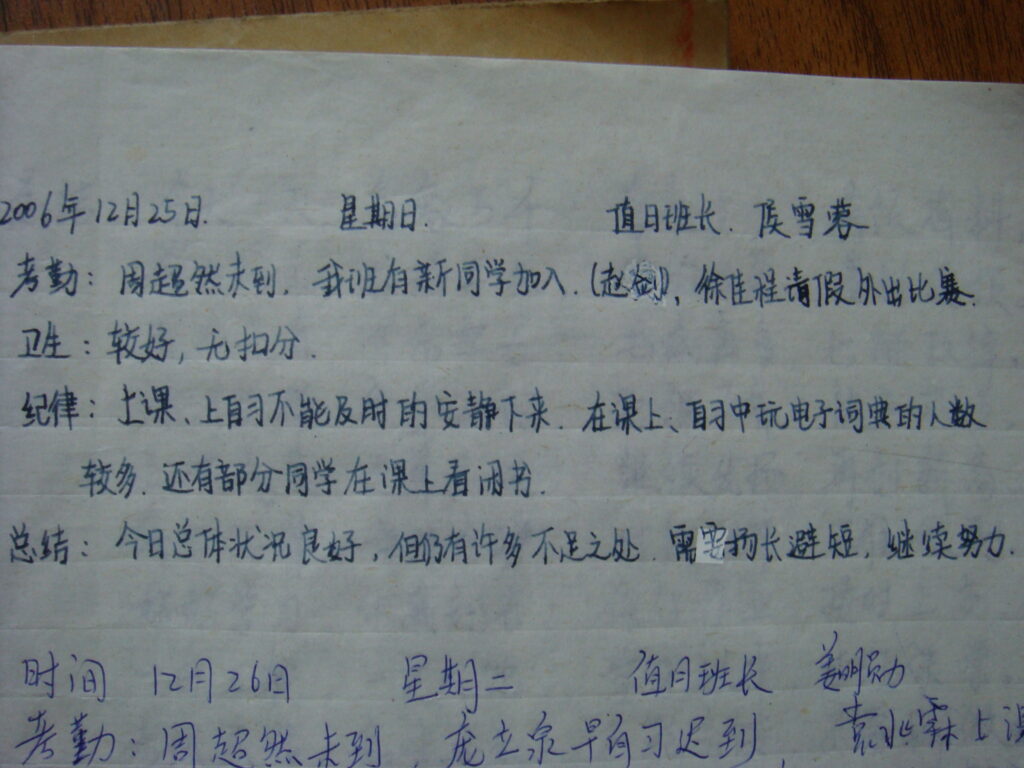 2006年12月25日. 星期日. 值日班长. 侯雪蓉
考勤: 周超然未到. 我班有新同学加入.(赵剑), 徐佳程请假外出比赛.
卫生: 较好, 无扣分.
纪律: 上课、上自习不能及时的安静下来. 在课上、自习中玩电子词典的人数
较多. 还有部分同学在课上看闲书.
总结: 今日总体状况良好, 但仍有许多不足之处. 需要扬长避短, 继续努力.
时间 12月26日 星期二 值日班长 姜明勋
考勤: 周超然未到, 庞立泉早自习迟到, 袁兆霖上课